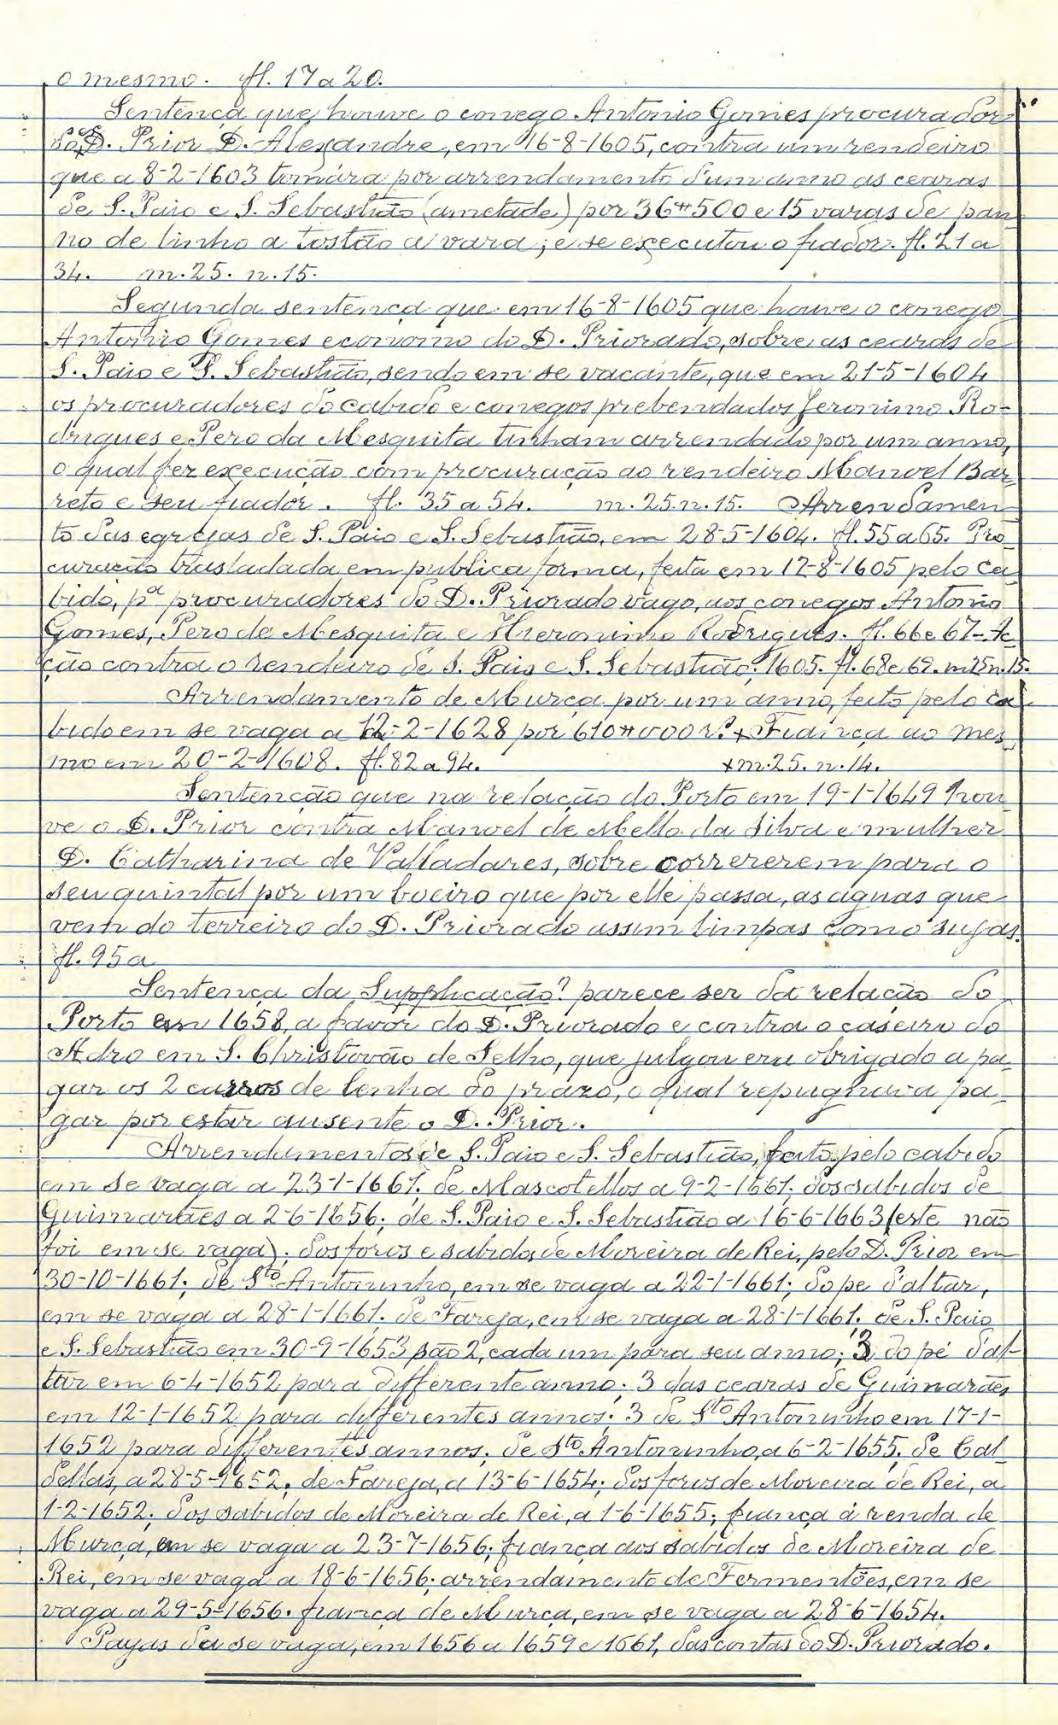 o mesmo. fl. 17 a 20.
Sentença que houve o conego Antonio Gomes procurador
do D. Prior D. Alexandre, em 16-8-1605, contra um rendeiro
que a 8-2-1603 tomára por arrendamento d'um anno as cearas
de S. Paio e S. Sebastião (ametade) por 36#500 e 15 varas de pan-
no de linho a tostão a vara; e se executou o fiador. fl. 21 a
34. m. 25. n. 15.
Segunda sentença que em 16-8-1605 que houve o conego
Antonio Gomes economo do D. Priorado, sobre as cearas de
S. Paio e S. Sebastião, sendo em se vacante, que em 21-5-1604
os procuradores do cabido e conegos prebendados Jeronimo Ro-
drigues e Pero da Mesquita tinham arrendado por um anno,
o qual fez execução com procuração ao rendeiro Manoel Bar-
reto e seu fiador. fl. 35 a 54. m. 25. n. 15. Arrendamen-
to das egrejas de S. Paio e S. Sebastião, em 28-5-1604. fl. 55 a 65. Pro-
curação trasladada em publica forma, feita em 12-8-1605 pelo ca-
bido, pª procuradores do D. Priorado vago, aos conegos Antonio
Gomes, Pero da Mesquita e Hieronimo Rodrigues. fl. 66 e 67. Ac-
ção contra o rendeiro de S. Paio e S. Sebastião. 1605. fl. 68 e 69. m. 25 n. 15.
Arrendamento de Murça por um anno, feito pelo ca-
bido em se vaga a 12-2-1628 por 610#000 rs. + Fiança ao mes-
mo em 20-2-1608. fl. 82 a 94. + m. 25. n. 14.
Sentenção que na relação do Porto em 19-1-1649 hou-
ve o D. Prior contra Manoel de Mello da Silva e mulher
D. Catharina de Valladares, sobre correrem para o
seu quintal por um boeiro que por elle passa, as aguas que
vem do terreiro do D. Priorado assim limpas como sujas.
fl. 95 a
Sentença da Supplicação? parece ser da relação do
Porto em 1658, a favor do D. Priorado e contra o caseiro do
Adro em S. Christovão de Selho, que julgou era obrigado a pa-
gar os 2 carros de lenha do prazo, o qual repugnava pa-
gar por estar ausente o D. Prior.
Arrendamentos de S. Paio e S. Sebastião, feito pelo cabido
em se vaga a 23-1-1661; de Mascotellos a 9-2-1661; dos sabidos de
Guimarães a 2-6-1656; de S. Paio e S. Sebastião a 16-6-1663 (este não
foi em se vaga); dos foros e sabidos de Moreira de Rei, pelo D. Prior em
30-10-1661; de Sto Antoninho, em se vaga a 22-1-1661; do pe d'altar,
em se vaga a 28-1-1661. de Fareja, em se vaga a 28-1-1661. de S. Paio
e S. Sebastião em 30-9-1653 são 2, cada um para seu anno; 3 do pé d'al-
tar em 6-4-1652 para differente anno; 3 das cearas de Guimarães
em 12-1-1652 para differentes annos; 3 de Sto Antoninho em 17-1-
1652 para differentes annos; de Sto Antoninho, a 6-2-1655; de Cal-
dellas, a 28-5-1652; de Fareja, a 13-6-1654; dos foros de Moreira de Rei, a
1-2-1652; dos sabidos de Moreira de Rei, a 1-6-1655; fiança á renda de
Murça, em se vaga a 23-7-1656; fiança aos sabidos de Moreira de
Rei, em se vaga a 18-6-1656; arrendamento de Fermentões, em se
vaga a 29-5-1656. fiança de Murça, em se vaga a 28-6-1654.
Pagas da se vaga, em 1656 a 1659 e 1661, das contas do D. Priorado.